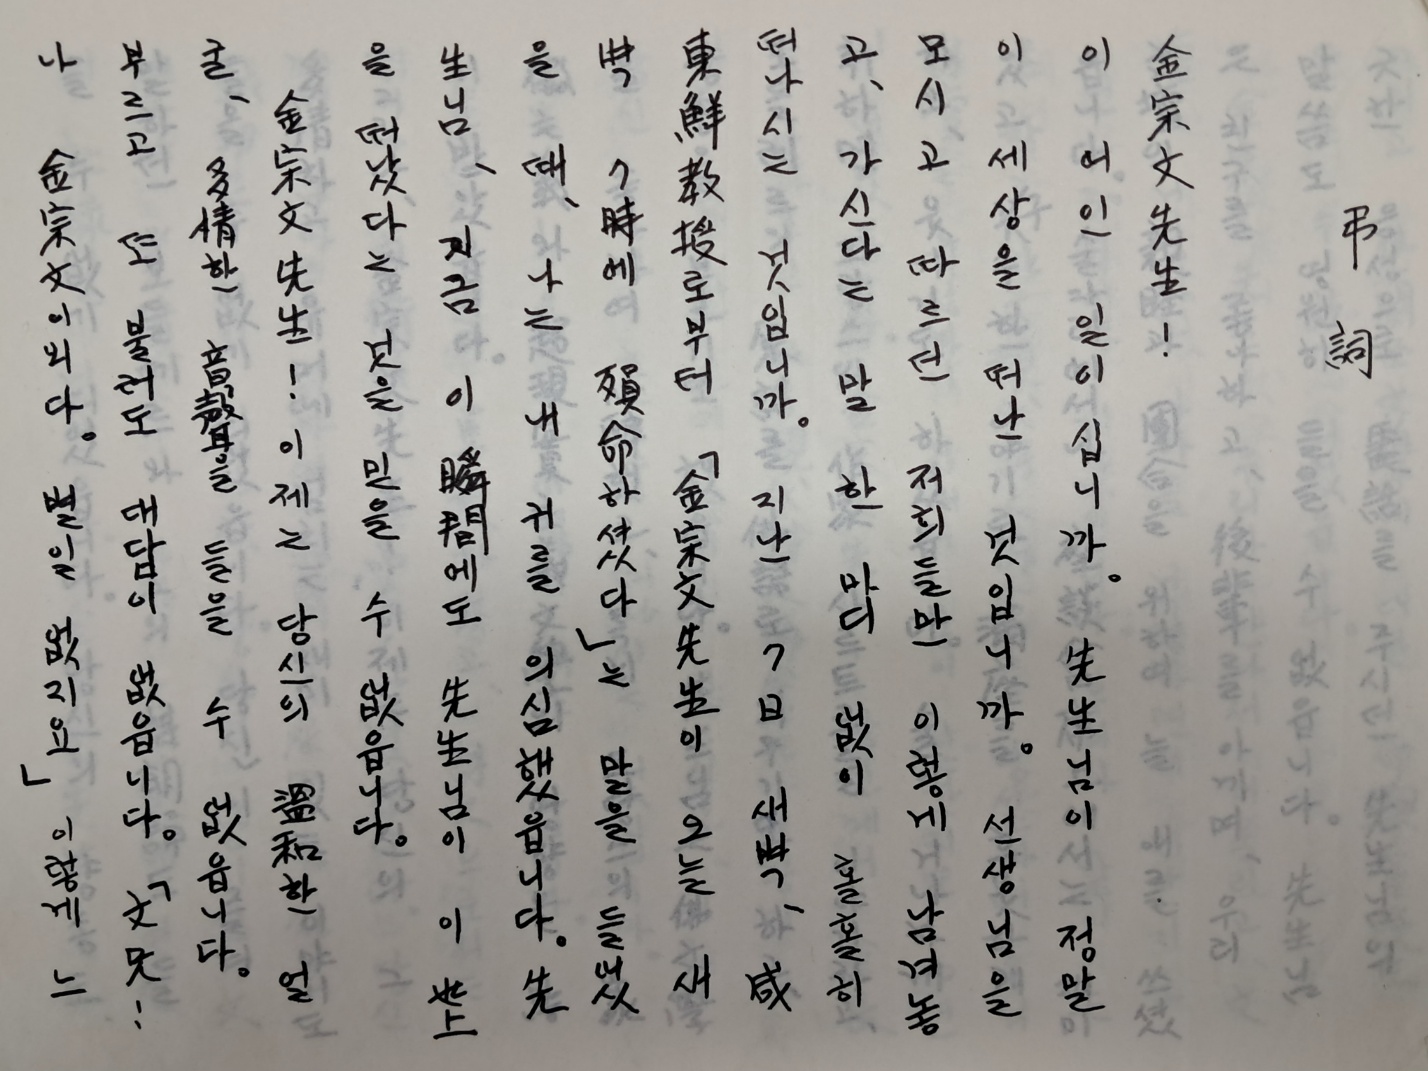 弔 詞
金宗文先生!
이 어인 일이십니까. 先生님이 정말
이 세상을 떠난 것입니까. 선생님을
모시고 따르던 저희들만 이렇게 남겨놓
고, 가신다는 말 한 마디 없이 훌훌히
떠나시는 것입니까. 지난 7日 새벽, 成
東鮮教授로부터 「金宗文先生이 오늘 새
벽 7時에 殞命하셨다」는 말을 들었
을 때, 나는 내 귀를 의심했읍니다. 先
生님, 지금 이 瞬間에도 先生님이 이 世上
을 떠났다는 것을 믿을 수 없읍니다.
金宗文先生! 이제는 당신의 溫和한 얼
굴, 多情한 音聲을 들을 수 없읍니다.
부르고 또 불러도 대답이 없읍니다. 「文兄!
나 金宗文이외다. 별일 없지요」 이렇게 느